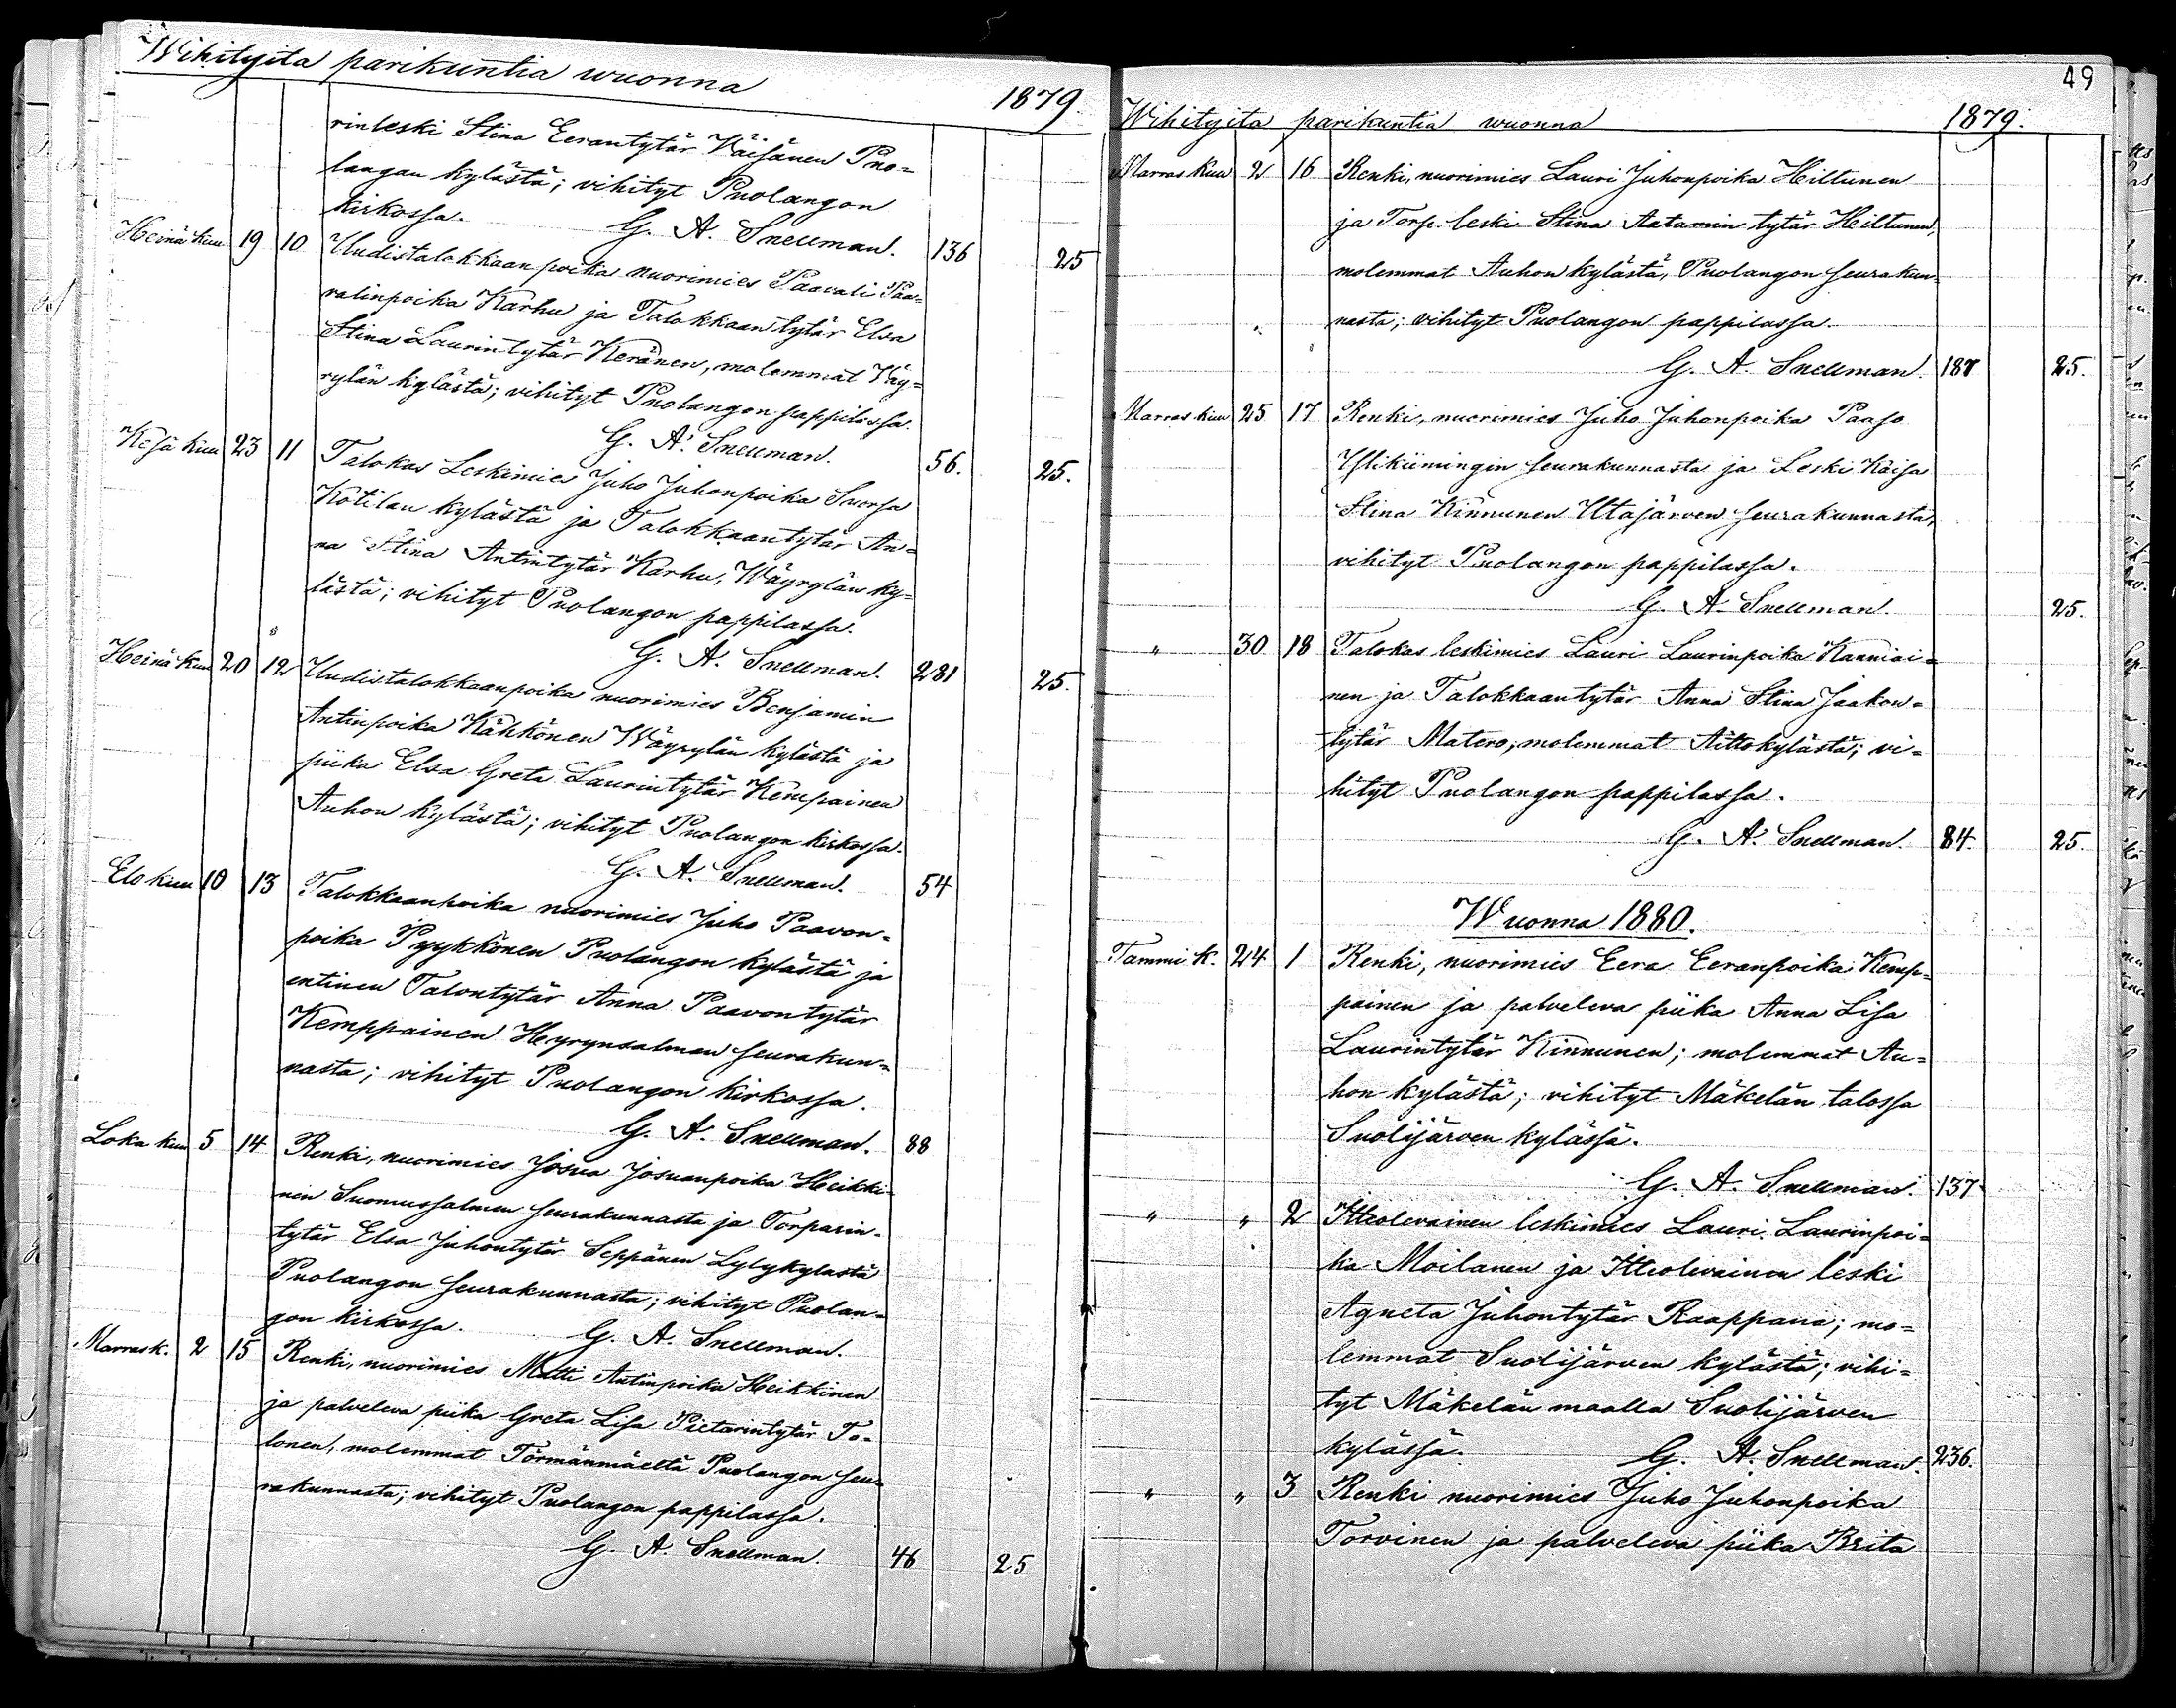 Wihityitä parikuntia wuonna 1879.
rinleski Stina Eerantytär Väisänen Puo=
langan kylästä; vihityt Puolangon
kirkossa. G. A. Snellman. 136 25
Heinä kuu 19 10 Uudistalokkaan poika nuorimies Paavali Paa=
valinpoika Karhu ja Talokkaan tytär Elsa
Stina Laurintytär Keränen, molemmat Väy=
rylän kylästä; vihityt Puolangon pappilassa.
G. A. Snellman. 56. 25.
Kesä kuu 23 11 Talokas Leskimies Juho Juhonpoika Suorsa
Kotilan kylästä ja Talokkaantytär An=
na Stina Antintytär Karhu, Wäyrylän ky=
lästä; vihityt Puolangon pappilassa.
G. A. Snellman. 281 25.
Heinä kuu 20 12 Uudistalokkaanpoika nuorimies Benjamin
Antinpoika Kähkönen Wäyrylän kylästä ja
piika Elsa Greta Laurintytär Kempainen
Auhon kylästä; vihityt Puolangon kirkossa.
G. A. Snellman. 54
Elo kuu 10 13 Talokkaanpoika nuorimies Juho Paavon=
poika Pyykkönen Puolangon kylästä ja
entinen Talontytär Anna Paavontytär
Kemppainen Hyrynsalmen seurakun=
nasta; vihityt Puolangon kirkossa.
G. A. Snellman. 88
Loka kuu 5 14 Renki, nuorimies Josua Josuanpoika Heikki=
nen Suomussalmen seurakunnasta ja Torparin=
tytär Elsa Juhontytär Seppänen Lylykylästä
Puolangon seurakunnasta; vihityt Puolan=
gon kirkossa. G. A. Snellman.
Marrask. 2 15 Renki, nuorimies Matti Antinpoika Heikkinen
ja palveleva piika Greta Lisa Pietarintytär To=
lonen, molemmat Törmänmäeltä Puolangon seu=
rakunnasta; vihityt Puolangon pappilassa.
G. A. Snellman. 46 25
49
Wihityitä parikuntia wuonna 1879.
Marras kuu 2 16 Renki, nuorimies Lauri Juhonpoika Hiltunen
ja Torp. leski Stina Aatamin tytär Hiltunen,
molemmat Auhon kylästä, Puolangon seurakun=
nasta; vihityt Puolangon pappilassa.
G. A. Snellman. 187 25.
Marras kuu 25 17 Renki, nuorimies Juho Juhonpoika Paaso
Ylikiimingin seurakunnasta ja Leski Kaisa
Stina Kinnunen Utajärven seurakunnasta,
vihityt Puolangon pappilassa.
G. A. Snellman. 25.
" 30 18 Talokas leskimies Lauri Laurinpoika Kanniai=
nen ja Talokkaantytär Anna Stina Jaakon=
tytär Matero; molemmat Aittokylästä; vi=
hityt Puolangon pappilassa.
G. A. Snellman. 84. 25.
Wuonna 1880.
Tammi k. 24 1 Renki, nuorimies Eera Eeranpoika Kemp=
painen ja palveleva piika Anna Lisa
Laurintytär Kinnunen; molemmat Au=
hon kylästä; vihityt Mäkelän talossa
Suolijärven kylässä.
G. A. Snellman. 137
" " 2 Itteolevainen leskimies Lauri Laurinpoi=
ka Moilanen ja Itteolevainen leski
Agneta Juhontytär Raappana; mo=
lemmat Suolijärven kylästä; vihi=
tyt Mäkelän maalla Suolijärven
kylässä. G. A. Snellman. 236.
" " 3 Renki nuorimies Juho Juhonpoika
Torvinen ja palveleva piika Brita